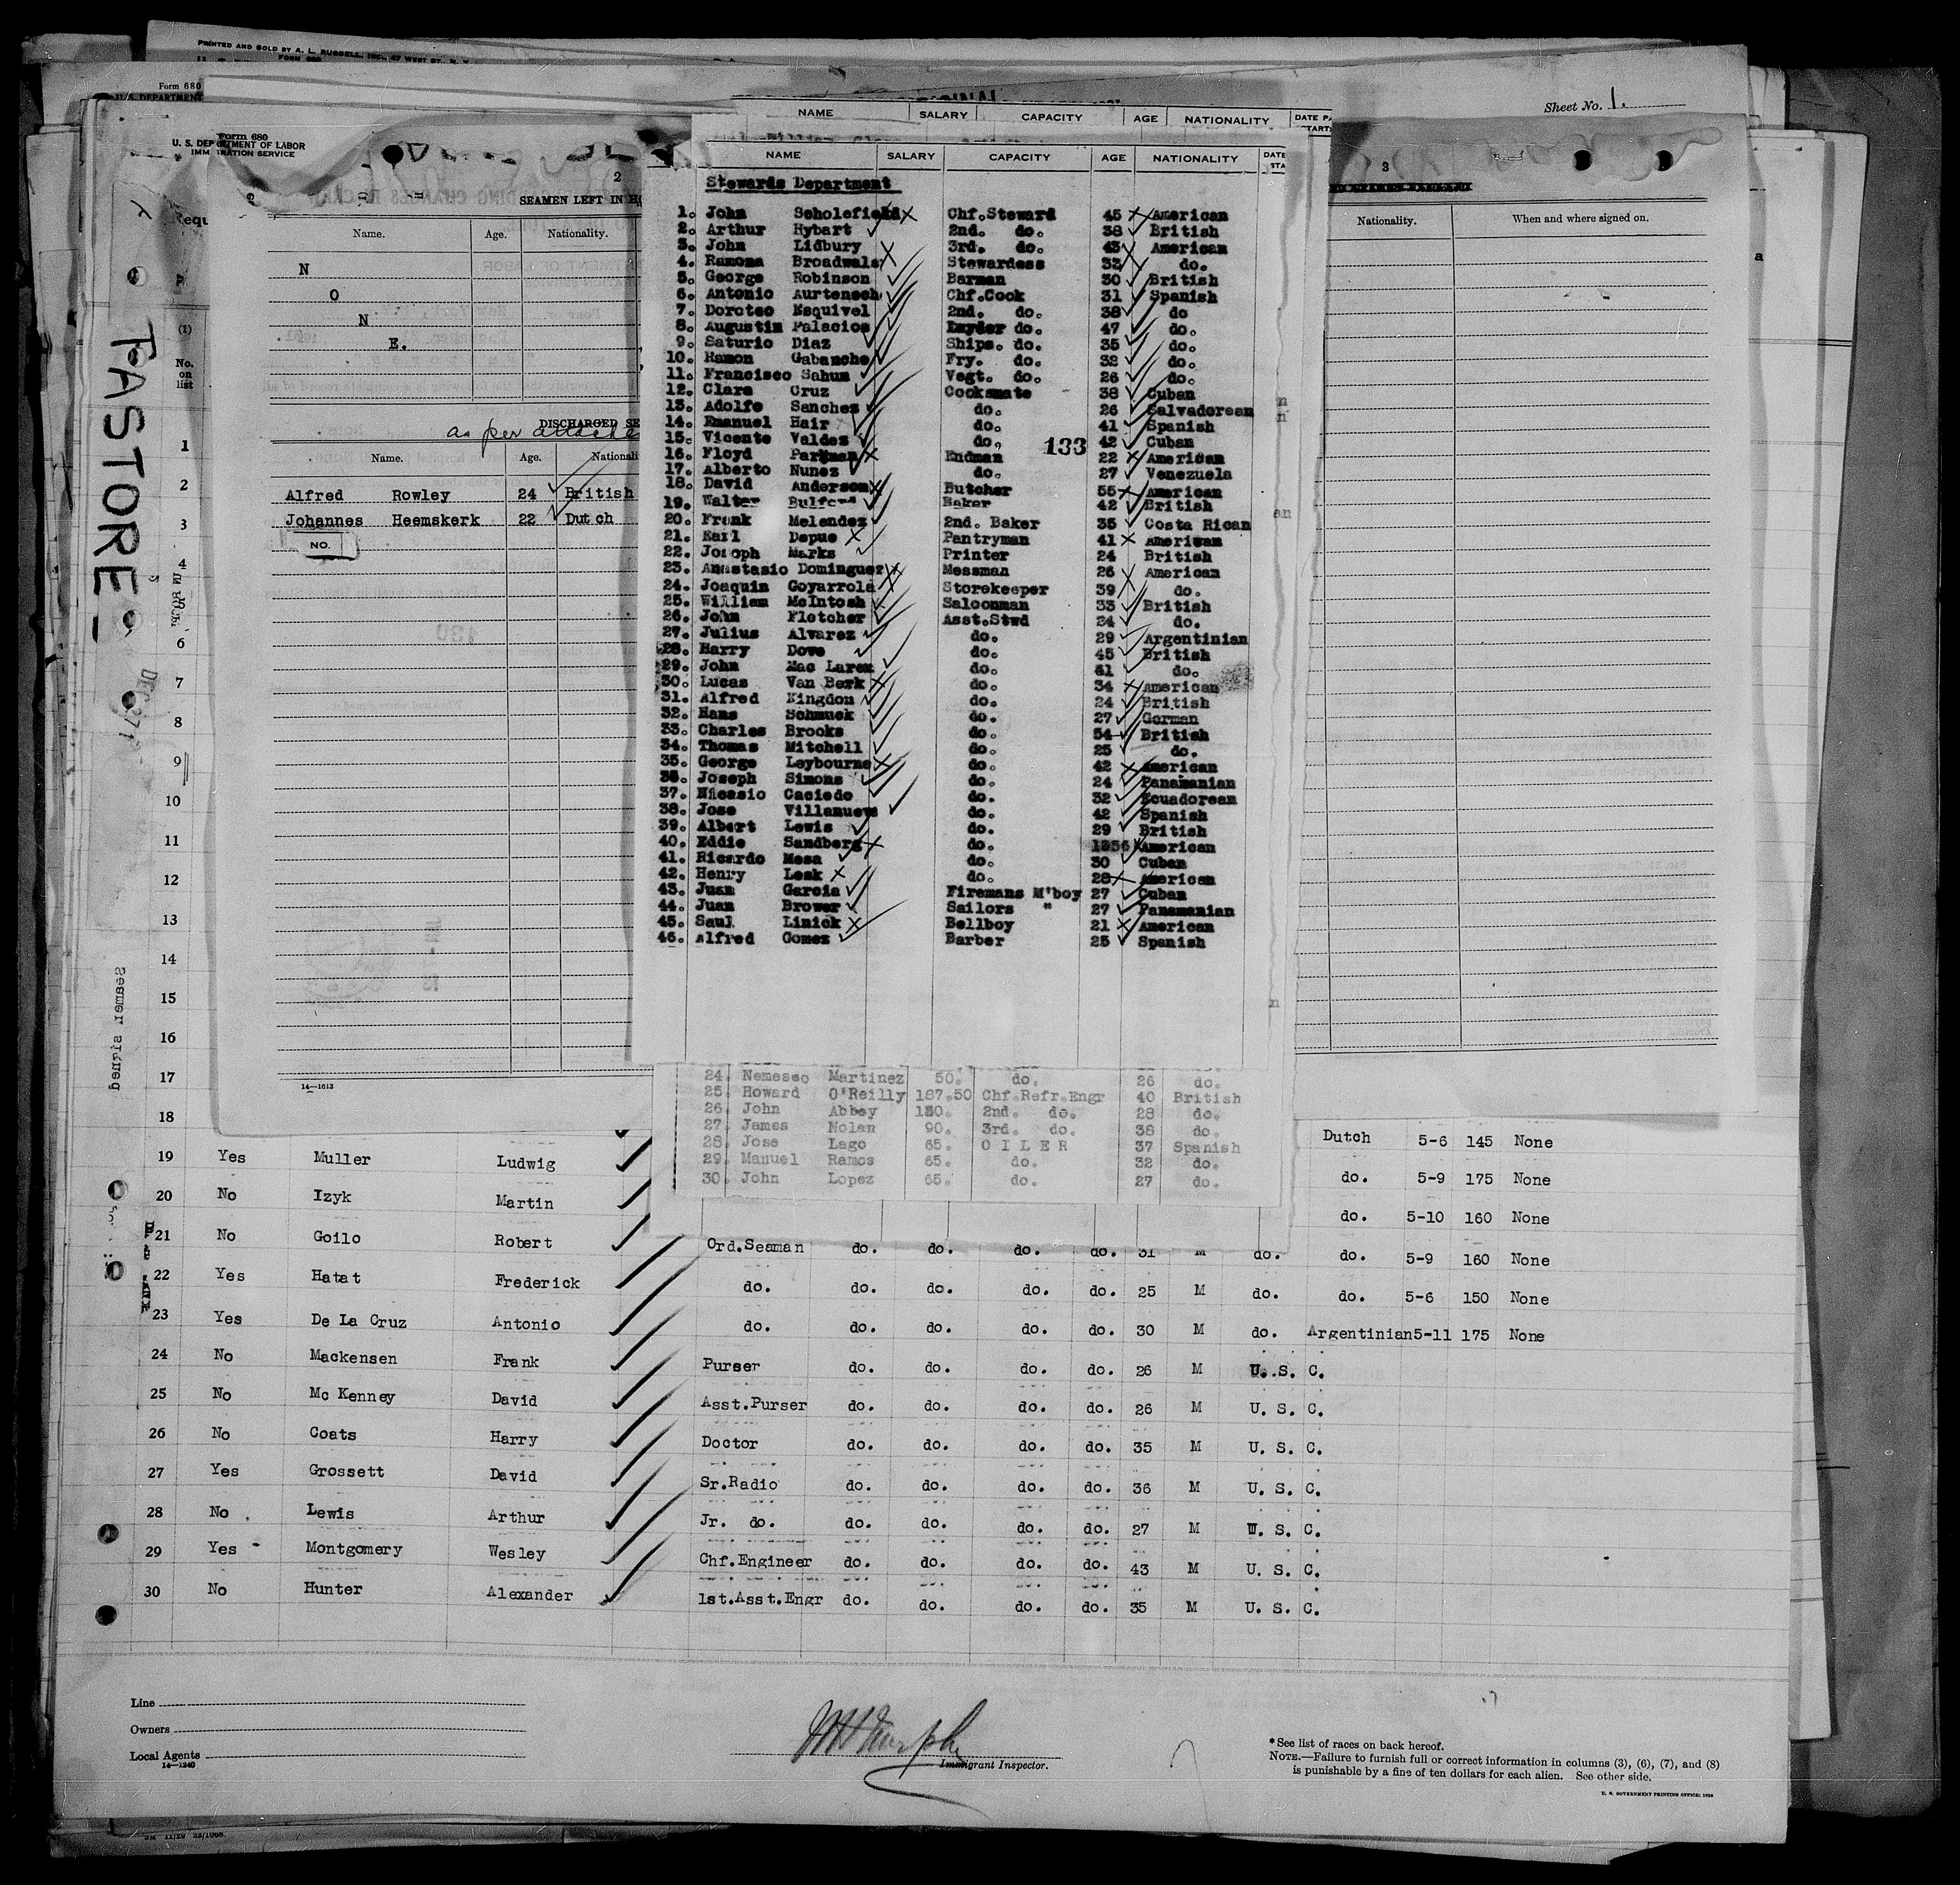 PRINTED AND SOLD BY A. L. RUSSELL, INC., 47 WEST ST., N. Y.
Form 680
U. S. DEPARTMENT
Sheet No. 1.
Form 680
U. S. DEPARTMENT OF LABOR
IMMIGRATION SERVICE
TASTORE
2
SEAMEN LEFT IN HO
Name. Age. Nationality.
N
O
N
E.
DISCHARGED SE
as per attache
Name. Age. Nationali
Alfred Rowley 24 British
Johannes Heemskerk 22 Dutch
NO.
14—1613
NAME SALARY CAPACITY AGE NATIONALITY DATE PA
NAME SALARY CAPACITY AGE NATIONALITY DATE STA
Stewards Department
1. John Scholefield Chf.Steward 45 American
2. Arthur Hybart 2nd. do. 38 British
3. John Lidbury 3rd. do. 43 American
4. Ramona Broadwals Stewardess 33 do.
5. George Robinson Barman 30 British
6. Antonio Aurtenech Chf.Cook 31 Spanish
7. Doroteo Esquivel 2nd. do. 38 do
8. Augustin Palacios do. 47 do.
9. Saturio Diaz Ships. do. 35 do.
10. Ramon Gabancho Fry. do. 32 do.
11. Francisco Sahun Vegt. do. 26 do.
12. Clara Cruz Cooksmate 38 Cuban
13. Adolfo Sanchez do. 26 Salvadorean
14. Emanuel Hair do. 41 Spanish
15. Vicente Valdes do. 42 Cuban
133
16. Floyd Endman 22 American
17. Alberto Nunez do. 27 Venezuela
18. David Anderson Butcher 55 American
19. Walter Bulford Baker 42 British
20. Frank Melendez 2nd. Baker 35 Costa Rican
21. Earl Depue Pantryman 41 American
22. Joseph Marks Printer 24 British
23. Anastasio Dominguez Messman 26 American
24. Joaquin Goyarrola Storekeeper 39 do.
25. William McIntosh Saloonman 33 British
26. John Fletcher Asst.Stwd 24 do.
27. Julius Alvarez do. 29 Argentinian
28. Harry Dove do. 45 British
29. John Mac Laren do. 31 do.
30. Lucas Van Berk do. 34 American
31. Alfred Kingdon do. 24 British
32. Hans Schmuck do. 27 German
33. Charles Brooks do. 54 British
34. Thomas Mitchell do. 25 do.
35. George Leybourne do. 42 American
36. Joseph Simons do. 24 Panamanian
37. Nicasio Caciedo do. 32 Ecuadorean
38. Jose Villanueva do. 42 Spanish
39. Albert Lewis do. 29 British
40. Eddie Sandberg do. American
41. Ricardo Mesa do. 30 Cuban
42. Henry Leak do. 28 American
43. Juan Garcia Firemans M'boy 27 Cuban
44. Juan Brower Sailors " 27 Panamanian
45. Saul Linick Bellboy 21 American
46. Alfred Gomez Barber 25 Spanish
24. Nemesso Martinez 50. do. 26 do.
25. Howard O'Reilly 187.50 Chf.Refr.Engr 40 British
26. John Abbey 130. 2nd. do. 28 do.
27. James Nolan 90. 3rd. do. 38 do.
28. Jose Lago 65. O I L E R 37 Spanish
29. Manuel Ramos 65. do. 32 do.
30. John Lopez 65. do. 27 do.
3
Nationality. When and where signed on.
(1)
No. on list
1
2
3
4
5
6
7
8
9
10
11
12
13
14
15
16
17
18 Dutch 5-6 145 None
19 Yes Muller Ludwig do. 5-9 175 None
20 No Izyk Martin do. 5-10 160 None
21 No Goilo Robert Ord.Seaman do. do. do. do. 31 M do. do. 5-9 160 None
22 Yes Hatat Frederick do. do. do. do. do. 25 M do. do. 5-6 150 None
23 Yes De La Cruz Antonio do. do. do. do. do. 30 M do. Argentinian 5-11 175 None
24 No Mackensen Frank Purser do. do. do. do. 26 M U. S. C.
25 No Mc Kenney David Asst.Purser do. do. do. do. 26 M U. S. C.
26 No Coats Harry Doctor do. do. do. do. 35 M U. S. C.
27 Yes Grossett David Sr.Radio do. do. do. do. 36 M U. S. C.
28 No Lewis Arthur Jr. do. do. do. do. do. 27 M U. S. C.
29 Yes Montgomery Wesley Chf.Engineer do. do. do. do. 43 M U. S. C.
30 No Hunter Alexander 1st.Asst.Engr do. do. do. do. 35 M U. S. C.
Line
Owners
Local Agents
14—1240
Immigrant Inspector.
* See list of races on back hereof.
NOTE.—Failure to furnish full or correct information in columns (3), (6), (7), and (8)
is punishable by a fine of ten dollars for each alien. See other side.
U. S. GOVERNMENT PRINTING OFFICE: 1929